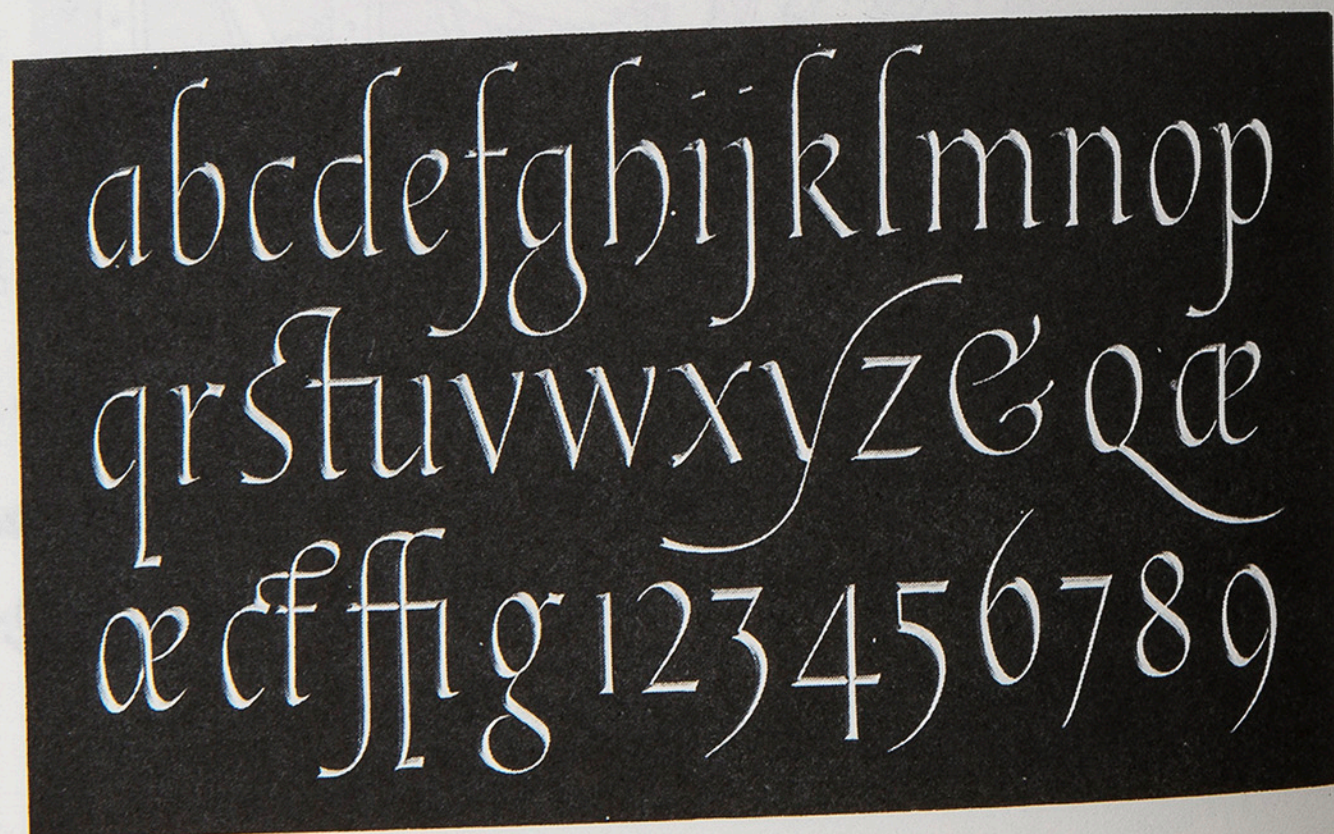 abcdefghijklmnop
qrstuvwxyz&Qæ
œctffig123456789